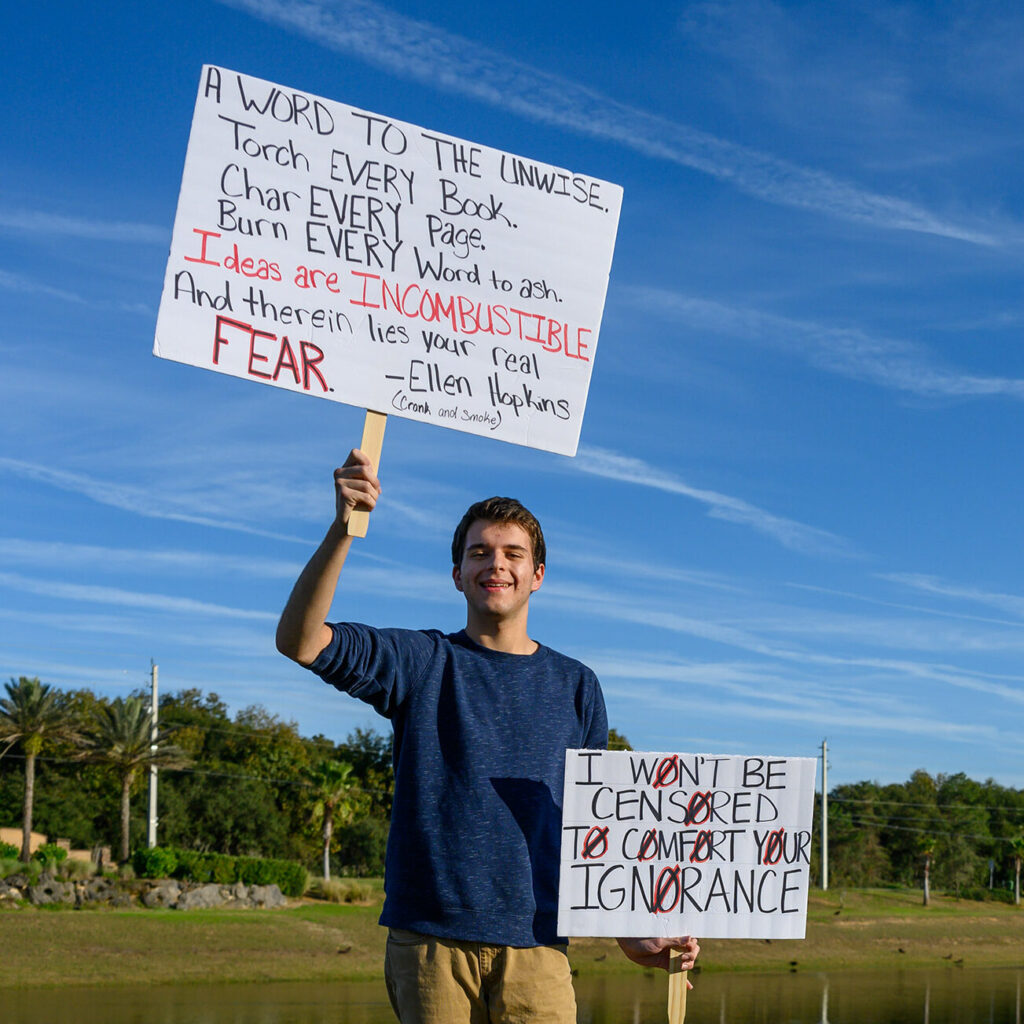 A WORD TO THE UNWISE.
Torch EVERY Book.
Char EVERY Page.
Burn EVERY Word to ash.
Ideas are INCOMBUSTIBLE
And therein lies your real
FEAR.
-Ellen Hopkins
(Crank and Smoke)
I WON'T BE
CENSORED
TO COMFORT YOUR
IGNORANCE